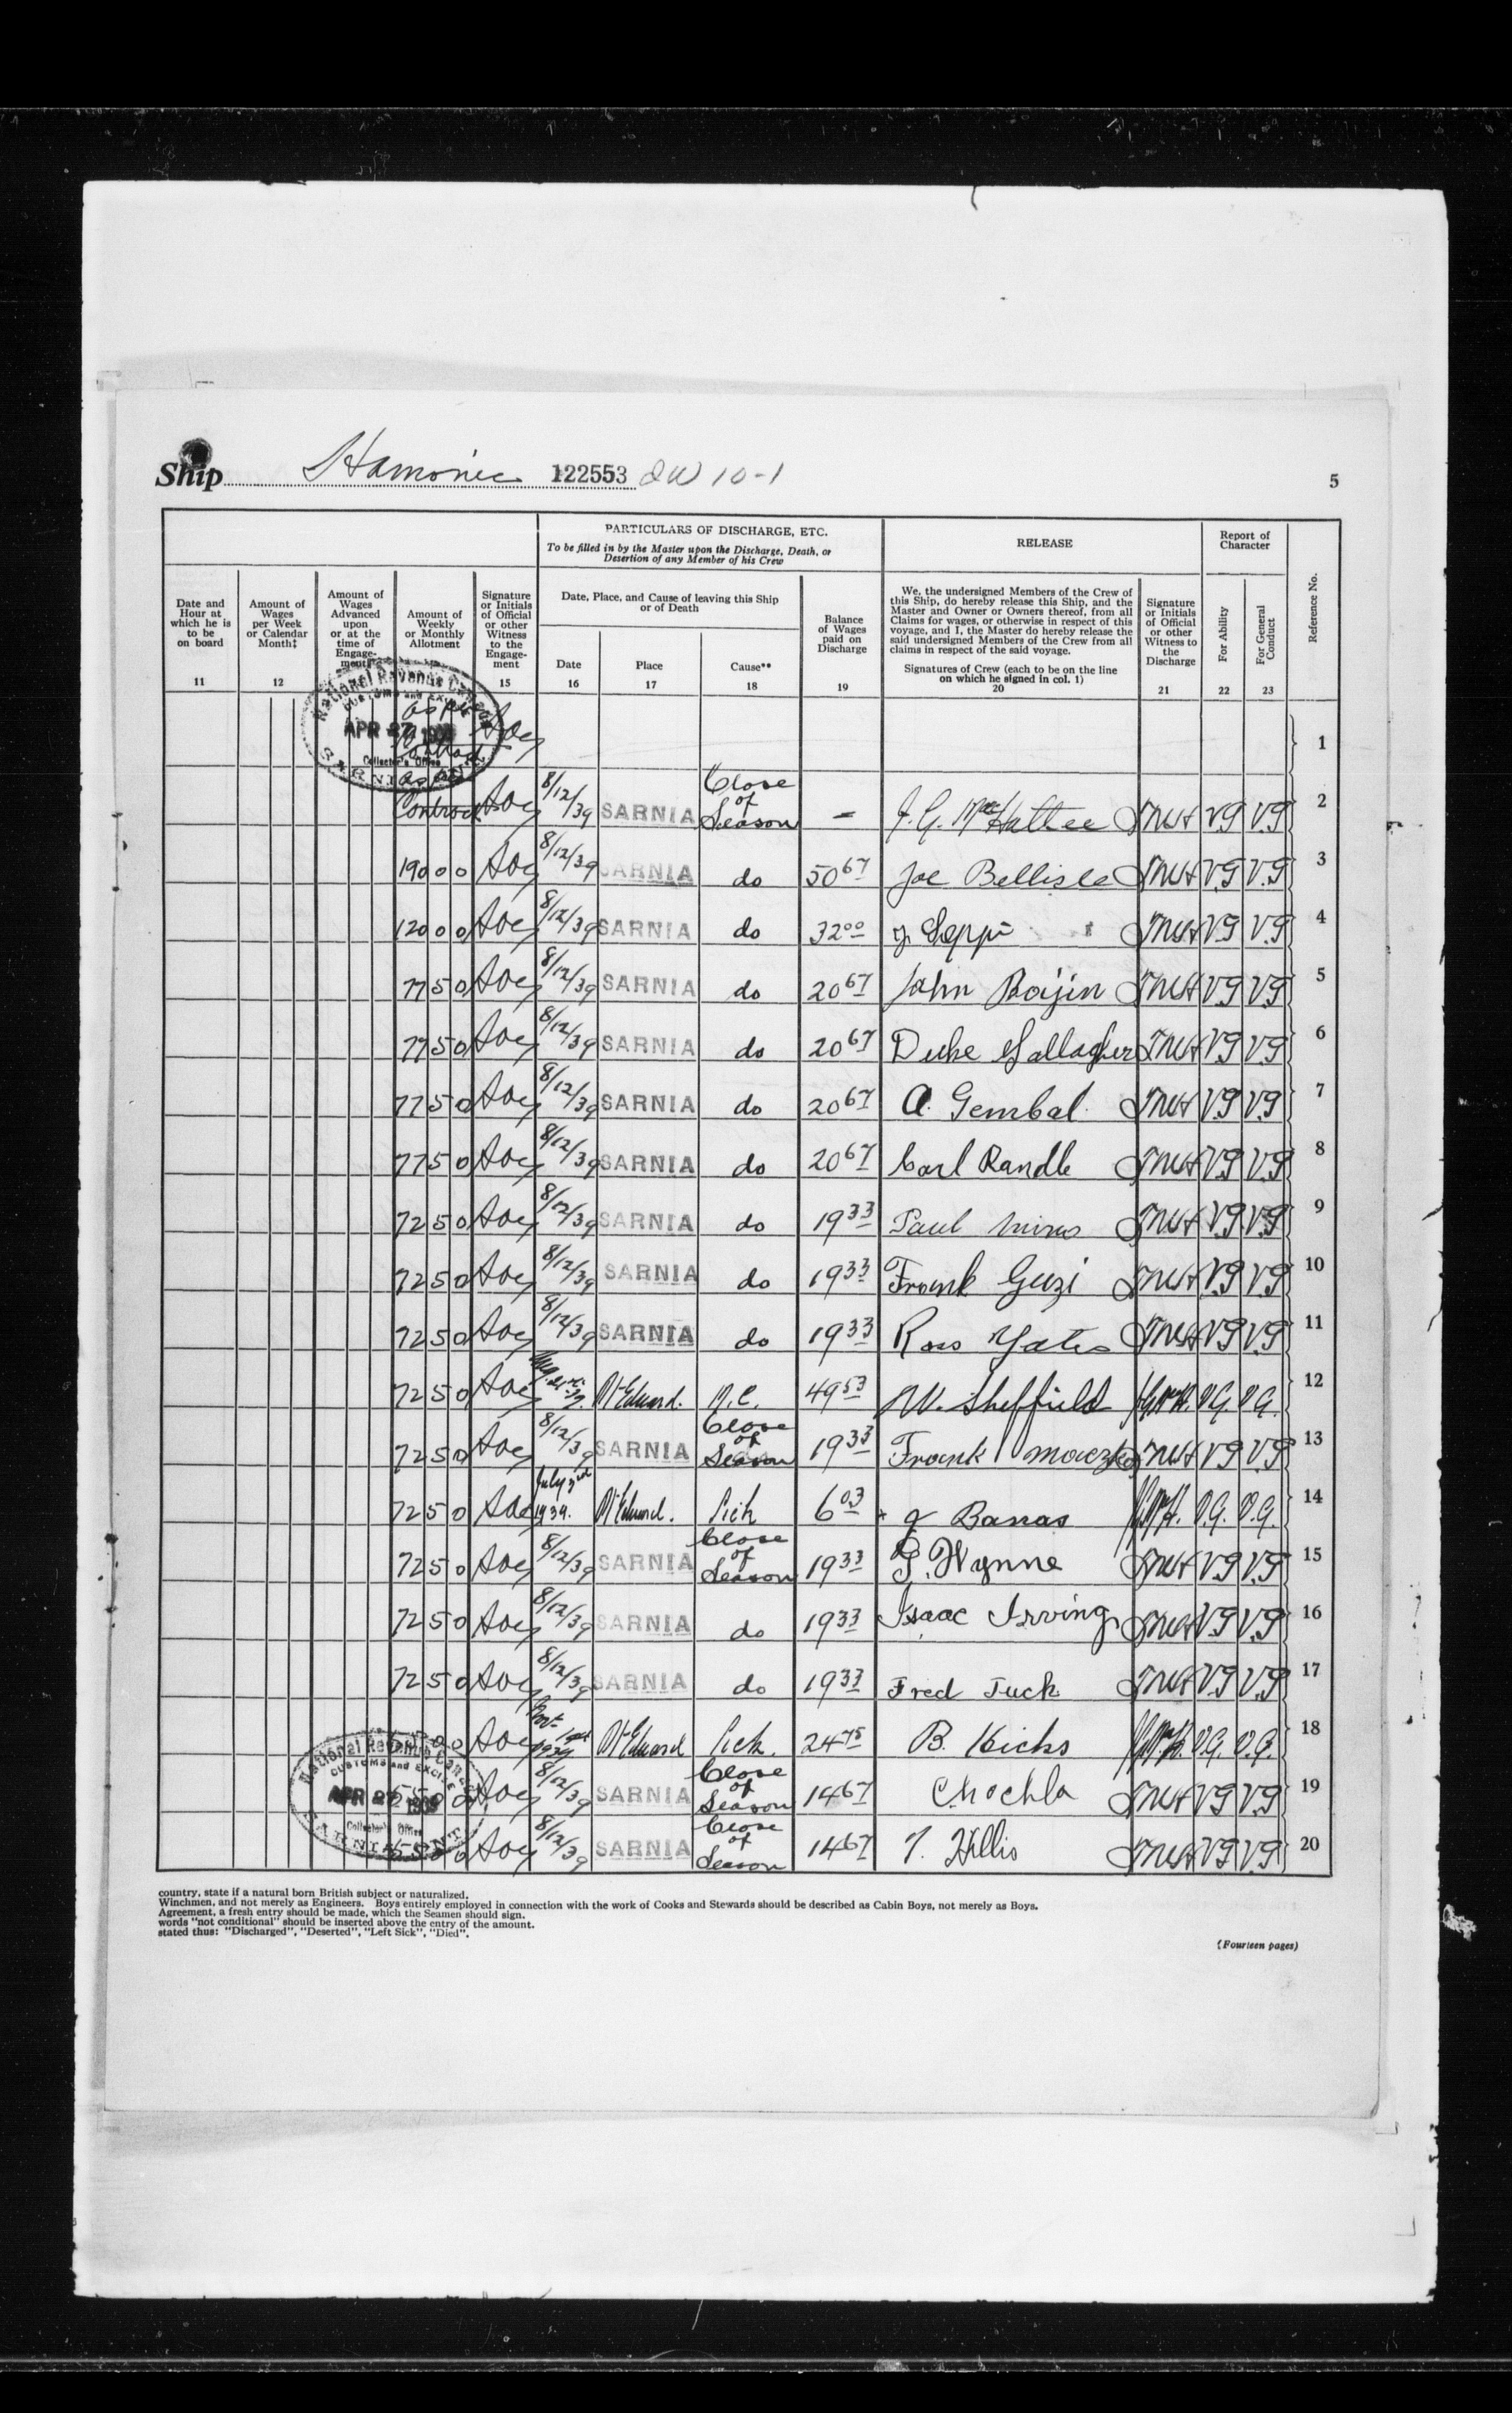 Ship Hamonic 122553 QW 10-1
5
PARTICULARS OF DISCHARGE, ETC.
To be filled in by the Master upon the Discharge, Death, or
Desertion of any Member of his Crew
RELEASE
Report of
Character
Reference No.
Date and
Hour at
which he is
to be
on board
11
Amount of
Wages
per Week
or Calendar
Month‡
12
Amount of
Wages
Advanced
upon
or at the
time of
Engage-
ment
Amount of
Weekly
or Monthly
Allotment
Signature
or Initials
of Official
or other
Witness
to the
Engage-
ment
15
Date, Place, and Cause of leaving this Ship
or of Death
Date
16
Place
17
Cause**
18
Balance
of Wages
paid on
Discharge
19
We, the undersigned Members of the Crew of
this Ship, do hereby release this Ship, and the
Master and Owner or Owners thereof, from all
Claims for wages, or otherwise in respect of this
voyage, and I, the Master do hereby release the
said undersigned Members of the Crew from all
claims in respect of the said voyage.
Signatures of Crew (each to be on the line
on which he signed in col. 1)
20
Signature
or Initials
of Official
or other
Witness to
the
Discharge
21
For Ability
22
For General
Conduct
23
National Revenue Canada
CUSTOMS and EXCISE
APR 27 1939
Collector's Office
SARNIA ONT
1
as per
Contract 8/12/39 SARNIA Close of Season - J. G. MacHattee VG VG 2
190 00 8/12/39 SARNIA do 50 67 Joe Bellisle VG VG 3
120 00 8/12/39 SARNIA do 32 00 Seppi VG VG 4
77 50 8/12/39 SARNIA do 20 67 John Boijin VG VG 5
77 50 8/12/39 SARNIA do 20 67 Duke Gallagher VG VG 6
77 50 8/12/39 SARNIA do 20 67 A. Gembal VG VG 7
77 50 8/12/39 SARNIA do 20 67 Carl Randle VG VG 8
72 50 8/12/39 SARNIA do 19 33 Paul VG VG 9
72 50 8/12/39 SARNIA do 19 33 Frank Guzi VG VG 10
72 50 8/12/39 SARNIA do 19 33 Ross Yates VG VG 11
72 50 Pt Edward. M.C. 49 53 W. Sheffield V.G. V.G. 12
72 50 8/12/39 SARNIA Close of Season 19 33 Frank VG VG 13
72 50 July 3rd 1939. Pt Edward. Sick 6 03 J Banas V.G. V.G. 14
72 50 8/12/39 SARNIA Close of Season 19 33 G. Wynne VG VG 15
72 50 8/12/39 SARNIA do 19 33 Isaac Irving VG VG 16
72 50 8/12/39 SARNIA do 19 33 Fred Tuck VG VG 17
1939 Pt Edward Sick. 24 75 B. Hicks V.G. V.G. 18
55 00 8/12/39 SARNIA Close of Season 14 67 Chochla VG VG 19
55 00 8/12/39 SARNIA Close of Season 14 67 T. Hillis VG VG 20
National Revenue Canada
CUSTOMS and EXCISE
APR 27 1939
Collector's Office
SARNIA ONT
country, state if a natural born British subject or naturalized.
Winchmen, and not merely as Engineers. Boys entirely employed in connection with the work of Cooks and Stewards should be described as Cabin Boys, not merely as Boys.
Agreement, a fresh entry should be made, which the Seamen should sign.
words "not conditional" should be inserted above the entry of the amount.
stated thus: "Discharged", "Deserted", "Left Sick", "Died".
(Fourteen pages)